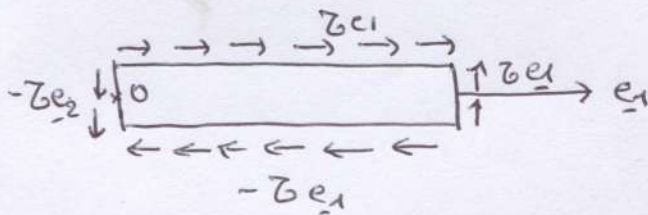 τe₁
-τe₂ 0 τe₁ e₁
-τe₁